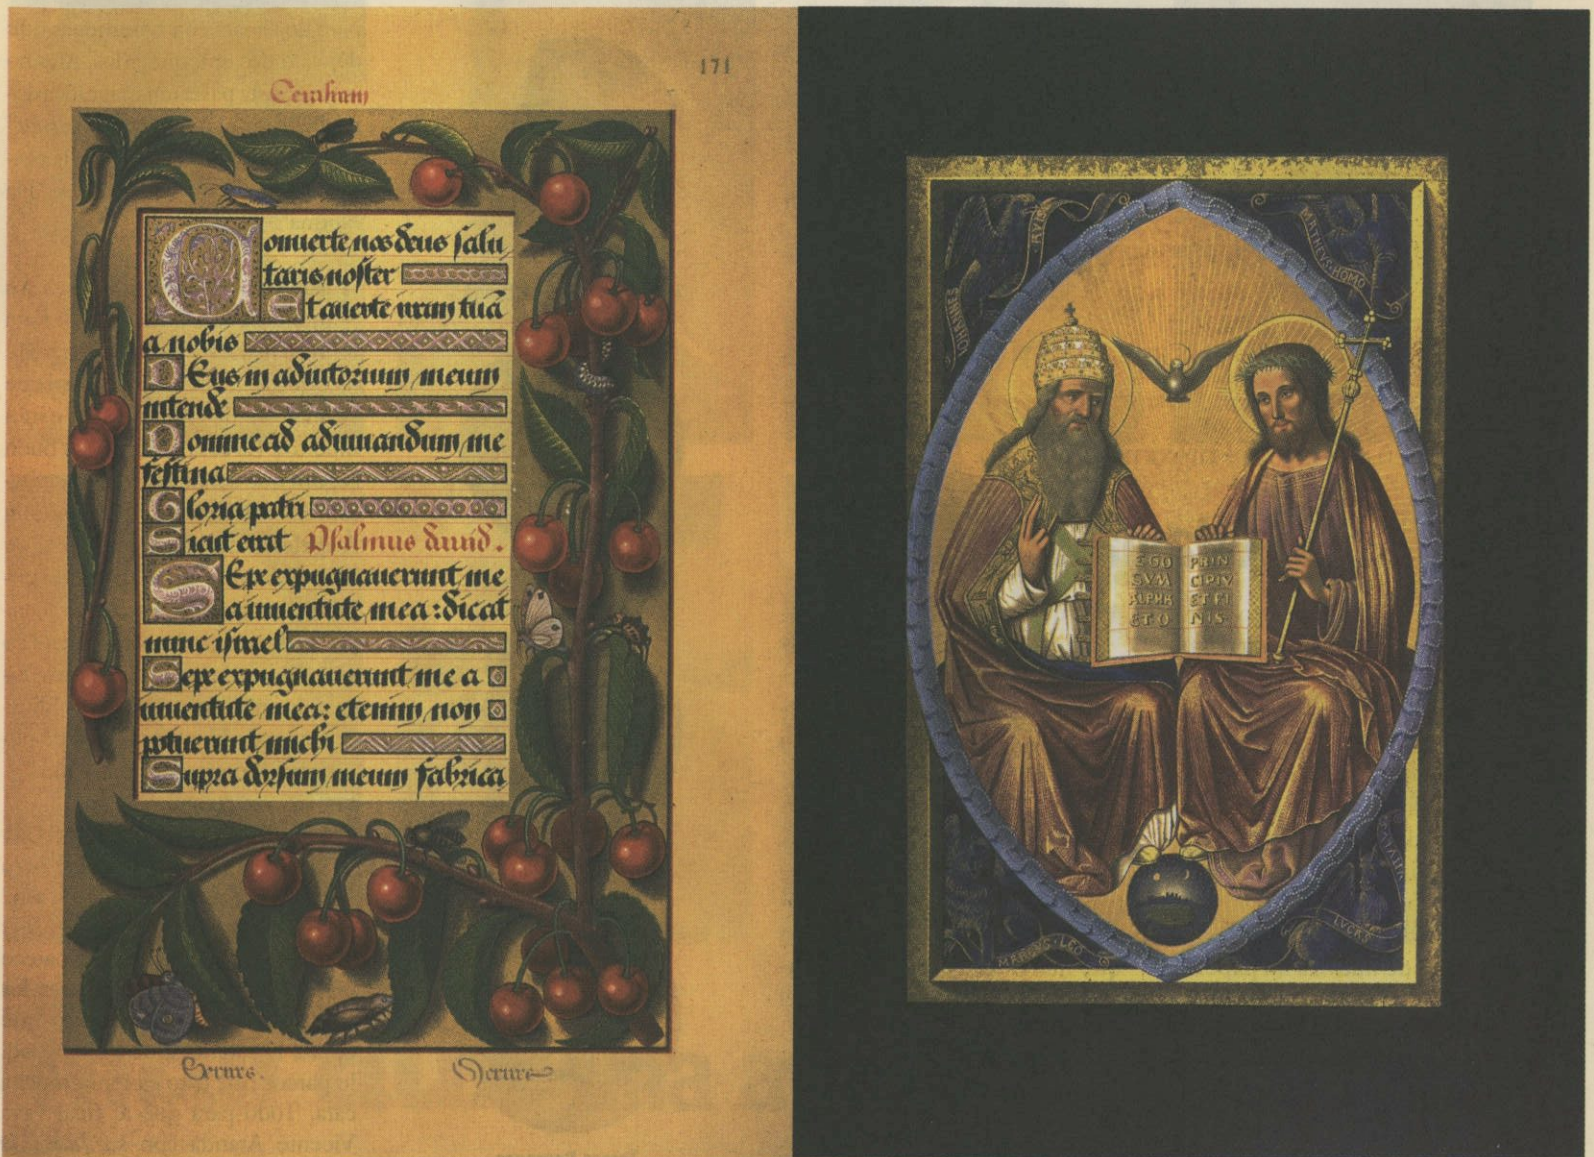 171
Conuerte nos deus salu
taris noster
Et auerte iram tuā
a nobis
DEus in adiutorium meum
intende
Domine ad adiuuandum me
festina
Gloria patri
Sicut erat Psalmus dauid.
SEpe expugnauerunt me
a iuuentute mea : dicat
nunc israel
Sepe expugnauerunt me a
iuuentute mea: etenim non
potuerunt michi
Supra dorsum meum fabrica
AVIS
IOHANNES
MATHEVS·HOMO
EGO
SVM
ALPHA
ET O
PRIN
CIPIV
ET FI
NIS
MARCVS·LEO
LVCAS